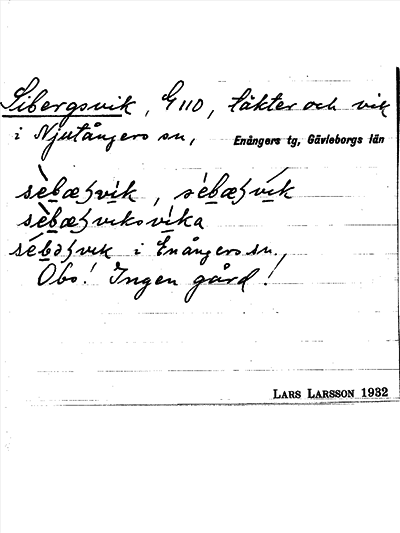 Sibergsvik, G 110, täkter och vik
i Njutångers sn, Enångers tg, Gävleborgs län
sè̱bæȝvi̱k, sé̱bæȝví̱k
sè̱bæȝviksvi̱ka
sé̱bəȝvik i Enångers sn.,
Obs! Ingen gård!
LARS LARSSON 1932